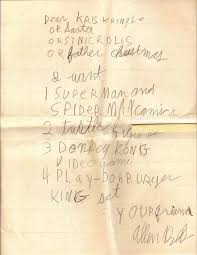 Dear KRIS KRINGLE
OR Santa
OR ST NICROLIC
OR father christmas
I want
1 SUPERMAN and
SPIDERMAN comics
2 turtle
3 Donkey KONG
VIDEO game
4 PLAY-DOH BURGER
KING set
YOUR friend
Allen